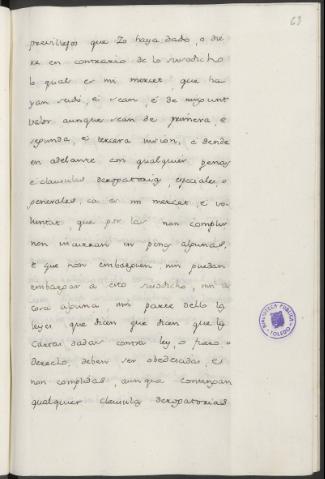 63
previllejos que Yo haya dado, o die
re en contrario de lo susodicho
lo qual es mi merced, que ha
yan seido, e sean, e de ningunt
valor aunque sean de primera e
segunda, e tercera jusion, e dende
en adelante con qualquier penas
e clausulas derogatorias, especiales, o
generales, ca es mi merced, e vo
luntat, que por las non complir
non incurran en pena alguna,
e que non embarguen, nin puedan
embargar a esto susodicho, nin a
cosa alguna nin parte dello las
leyes que dicen que dicen que las
cartas dadas contra ley, o fuero o
derecho, deben ser obedecidas, e
non complidas, aunque contengan
qualquier clausulas derogatorias
BIBLIOTECA PUBLICA
TOLEDO